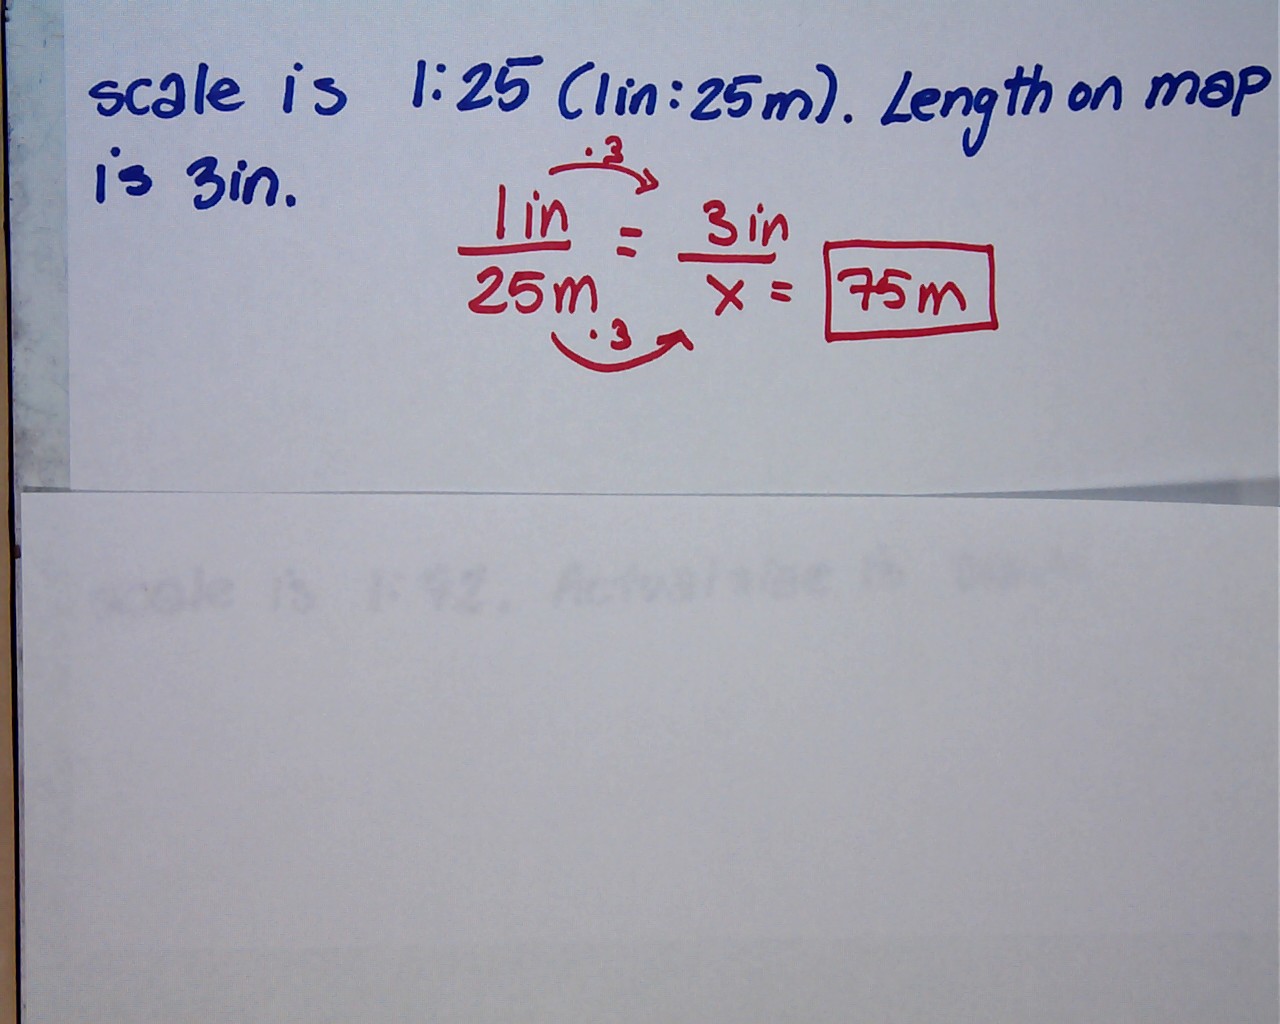 scale is 1:25 (1in:25m). Length on map
is 3in.
·3
1in = 3in
25m x = 75m
·3
scale is 1:72. Actual size is